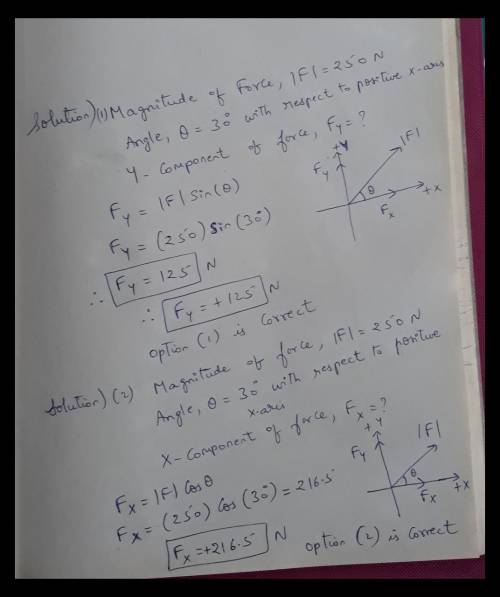 Solution) (1) Magnitude of Force, |F| = 250 N
Angle, θ = 30° with respect to positive x-axis
Y- Component of force, Fy = ?
Fy = |F| Sin(θ)
Fy = (250) Sin (30°)
∴ Fy = 125 N
∴ Fy = +125 N
option (1) is correct
+y
Fy
|F|
θ
+x
Fx
Solution) (2) Magnitude of force, |F| = 250 N
Angle, θ = 30° with respect to positive
x-axis
X- Component of force, Fx = ?
Fx = |F| Cosθ
Fx = (250) Cos (30°) = 216.5
Fx = +216.5 N
+y
Fy
|F|
θ
Fx
+x
option (2) is correct